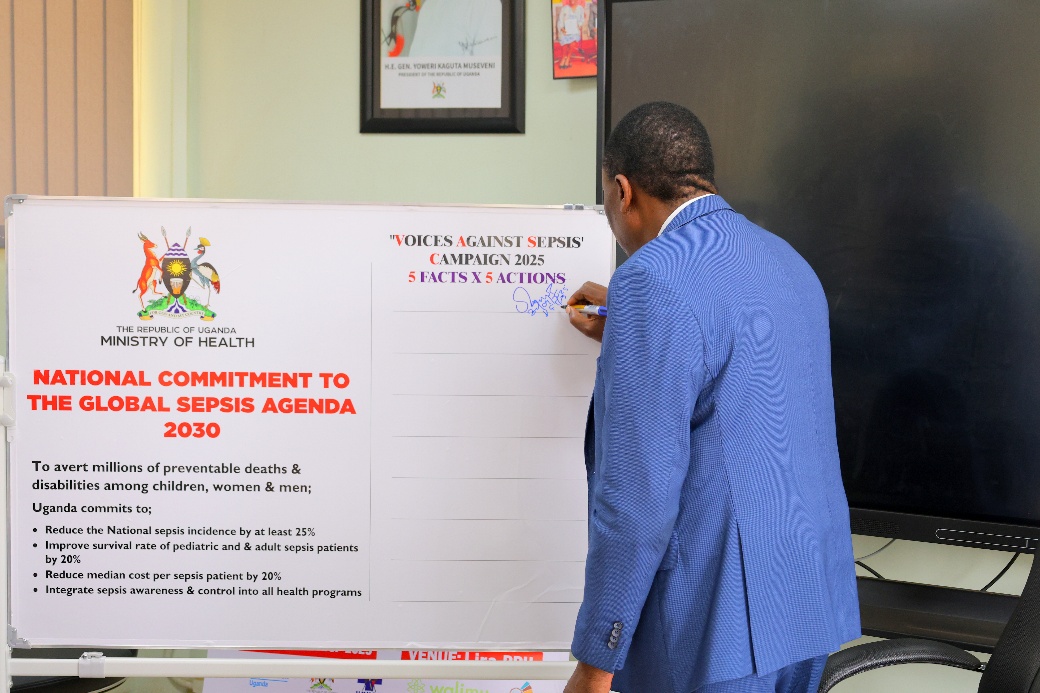 H.E. GEN. YOWERI KAGUTA MUSEVENI
PRESIDENT OF THE REPUBLIC OF UGANDA
THE REPUBLIC OF UGANDA
MINISTRY OF HEALTH
NATIONAL COMMITMENT TO
THE GLOBAL SEPSIS AGENDA
2030
To avert millions of preventable deaths &
disabilities among children, women & men;
Uganda commits to;
• Reduce the National sepsis incidence by at least 25%
• Improve survival rate of pediatric and & adult sepsis patients
by 20%
• Reduce median cost per sepsis patient by 20%
• Integrate sepsis awareness & control into all health programs
"VOICES AGAINST SEPSIS'
CAMPAIGN 2025
5 FACTS X 5 ACTIONS
VENUE:
Uganda
walimu